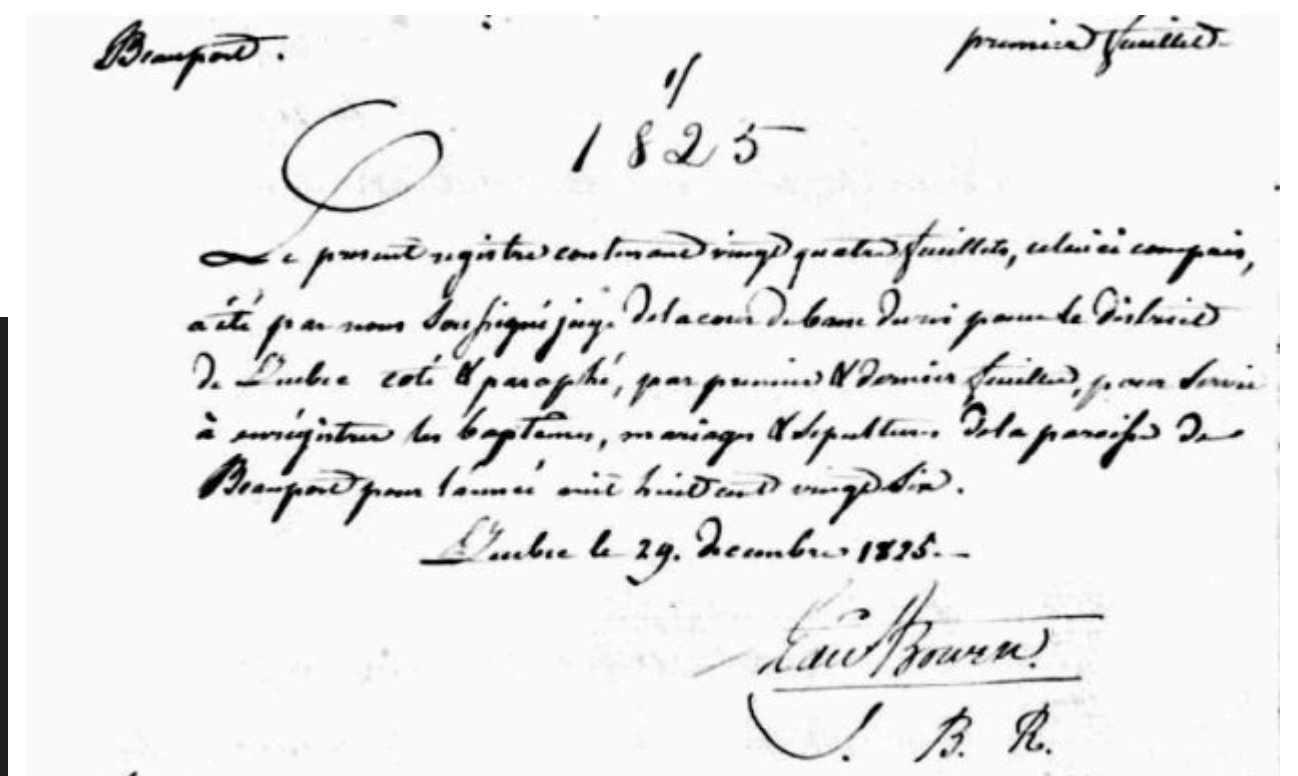 Beauport. premier feuillet
1/
1825
Le present registre contenant vingt quatre feuillets, celui ci compris,
a été par nous soussigné juge de la cour du banc du roi pour le district
de Quebec coté & paraphé, par premier & dernier feuillet, pour servir
à enrégistrer les baptemes, mariages & sepultures de la paroisse de
Beauport pour l'année mil huit cent vingt six.
Quebec le 29. decembre 1825.
Edw Bowen.
J. B. R.